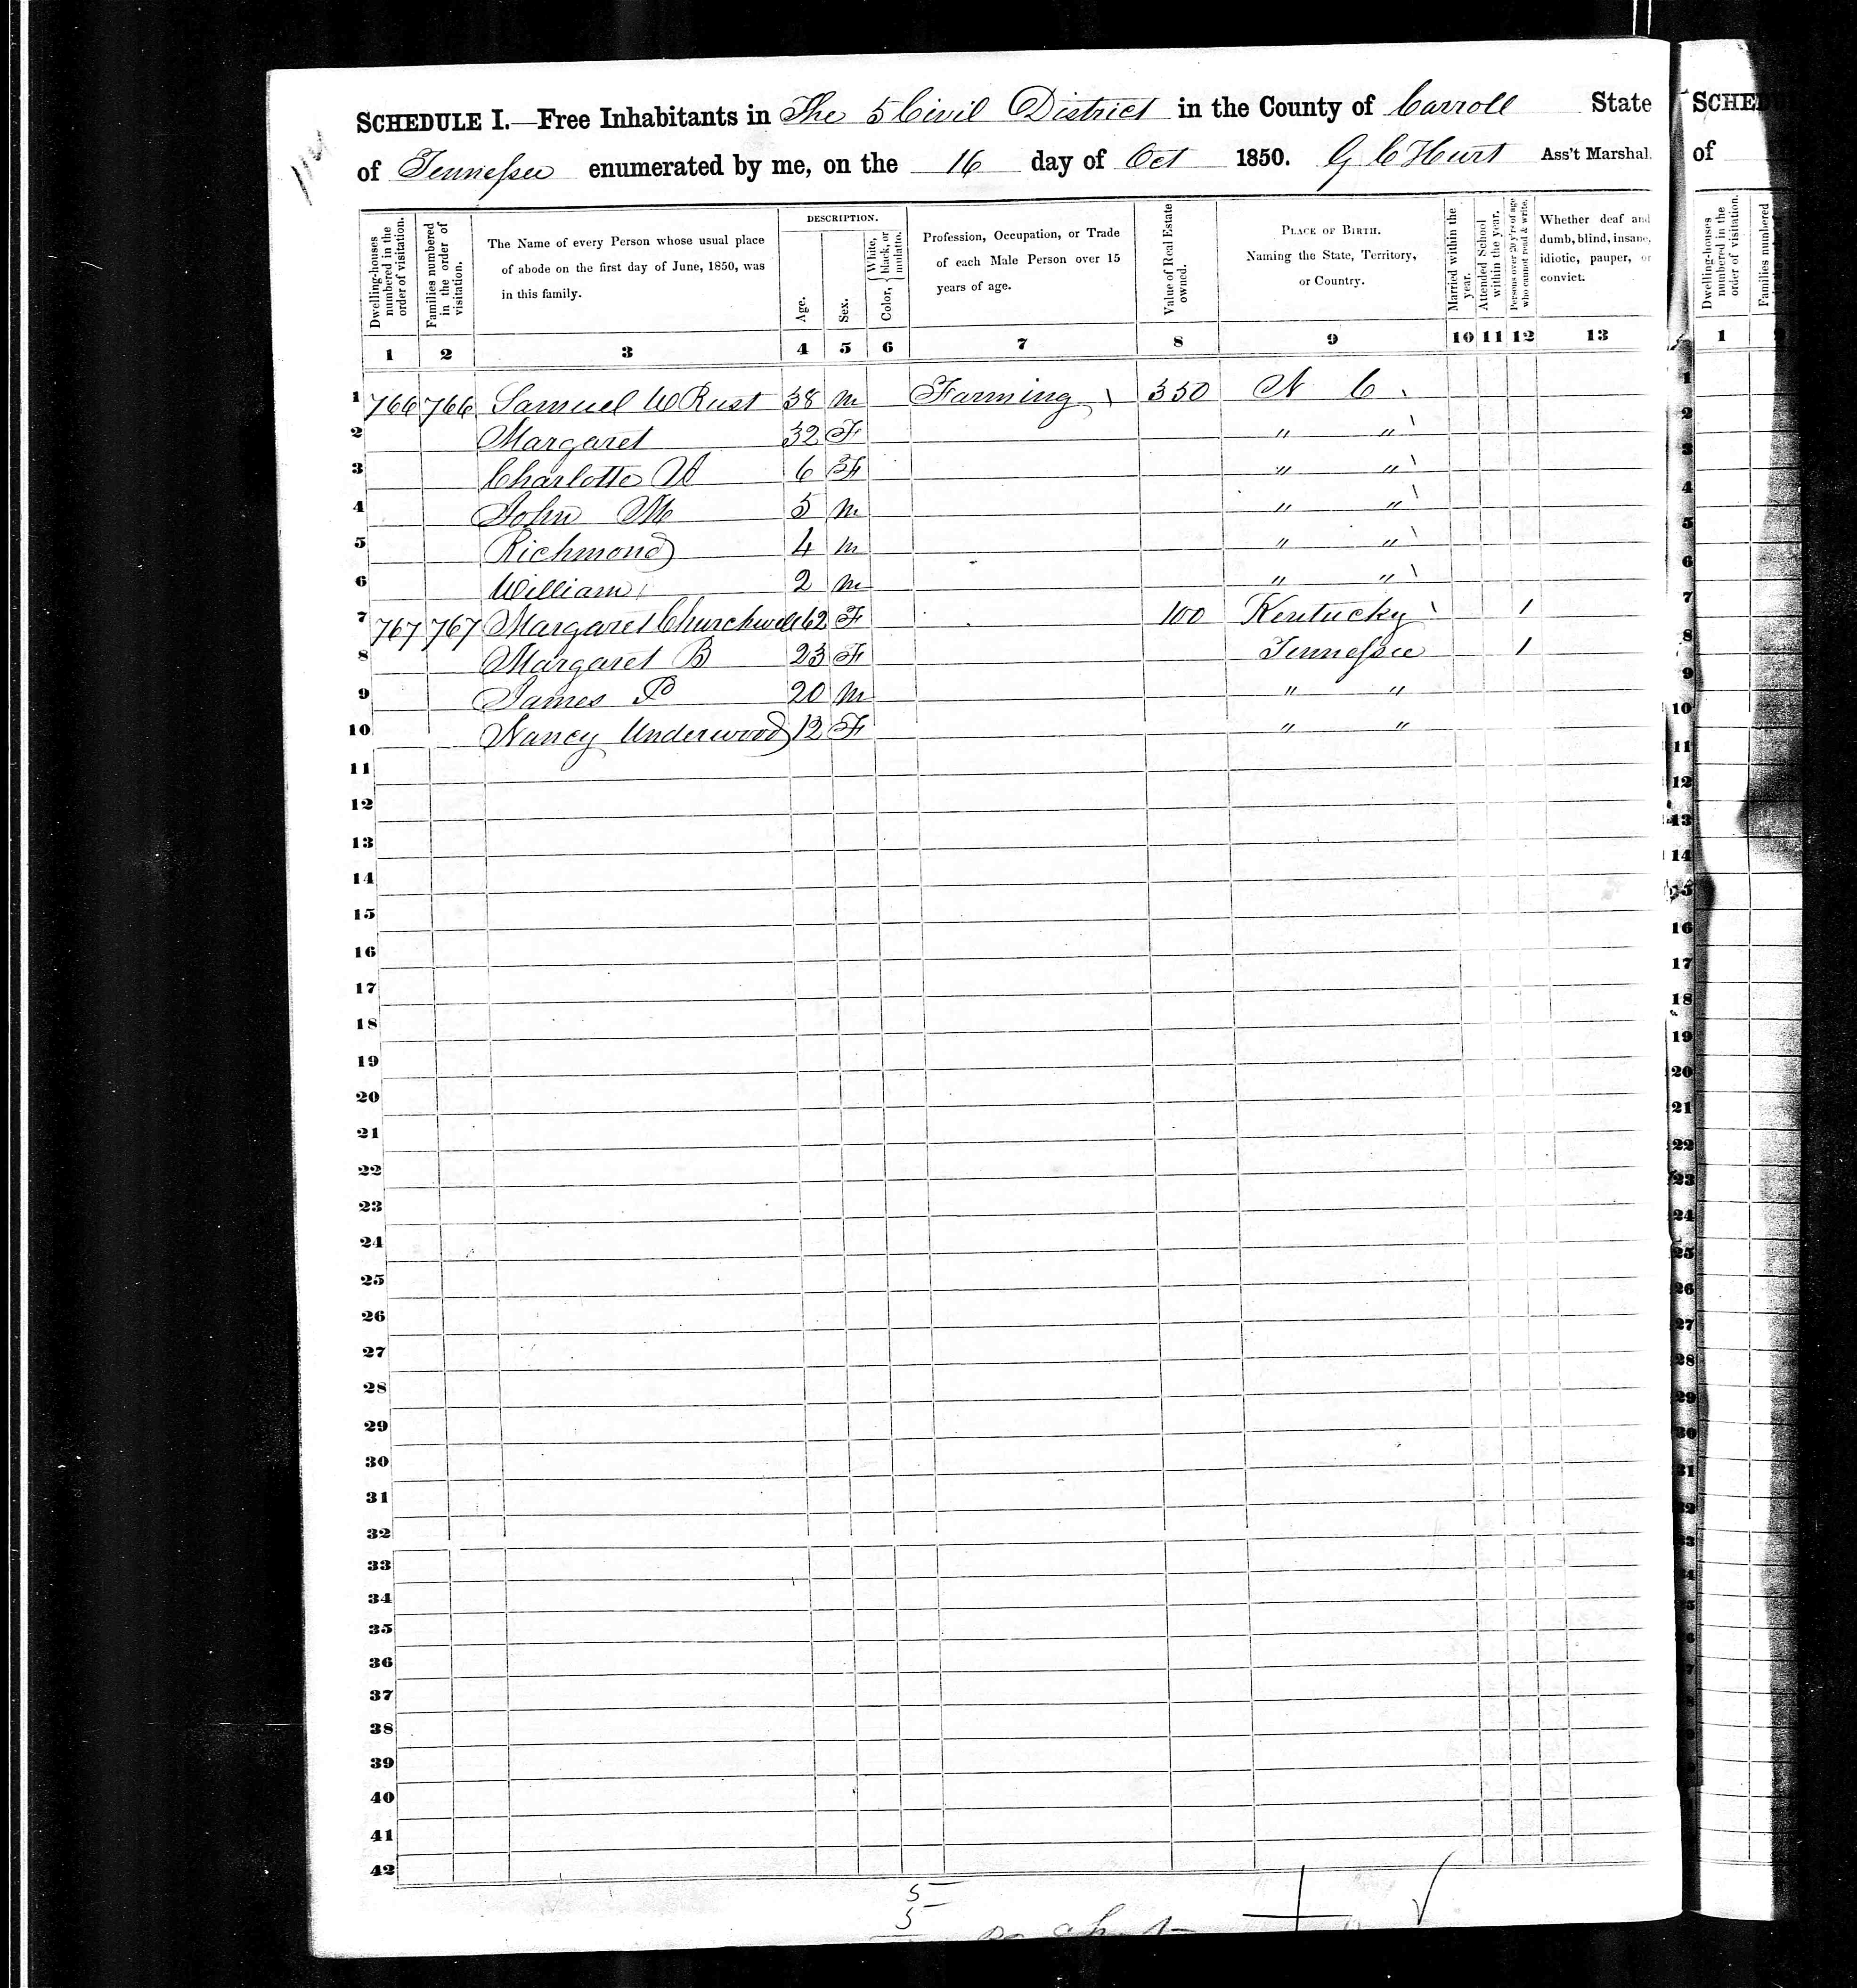 SCHEDULE I.—Free Inhabitants in The 5 Civil District in the County of Carroll State
of Tennessee enumerated by me, on the 16 day of Oct 1850. G C Hurt Ass't Marshal.
Dwelling-houses numbered in the order of visitation.
Families numbered in the order of visitation.
The Name of every Person whose usual place of abode on the first day of June, 1850, was in this family.
DESCRIPTION.
Age.
Sex.
Color, { White, black, or mulatto.
Profession, Occupation, or Trade of each Male Person over 15 years of age.
Value of Real Estate owned.
PLACE OF BIRTH. Naming the State, Territory, or Country.
Married within the year.
Attended School within the year.
Persons over 20 y'rs of age who cannot read & write.
Whether deaf and dumb, blind, insane, idiotic, pauper, or convict.
1 2 3 4 5 6 7 8 9 10 11 12 13
1 766 766 Samuel W Rust 38 m Farming 350 N C
2 Margaret 32 F " "
3 Charlotte 6 F " "
4 John M 5 m " "
5 Richmond 4 m " "
6 William 2 m " "
7 767 767 Margaret Churchwell 62 F 100 Kentucky 1
8 Margaret B 23 F Tennessee 1
9 James P 20 m " "
10 Nancy Underwood 12 F " "
11
12
13
14
15
16
17
18
19
20
21
22
23
24
25
26
27
28
29
30
31
32
33
34
35
36
37
38
39
40
41
42
5
5
SCHED
of
Dwelling-houses numbered in the order of visitation.
Families numbered
1
1
2
3
4
5
6
7
8
9
10
11
12
13
14
15
16
17
18
19
20
21
22
23
24
25
26
27
28
29
30